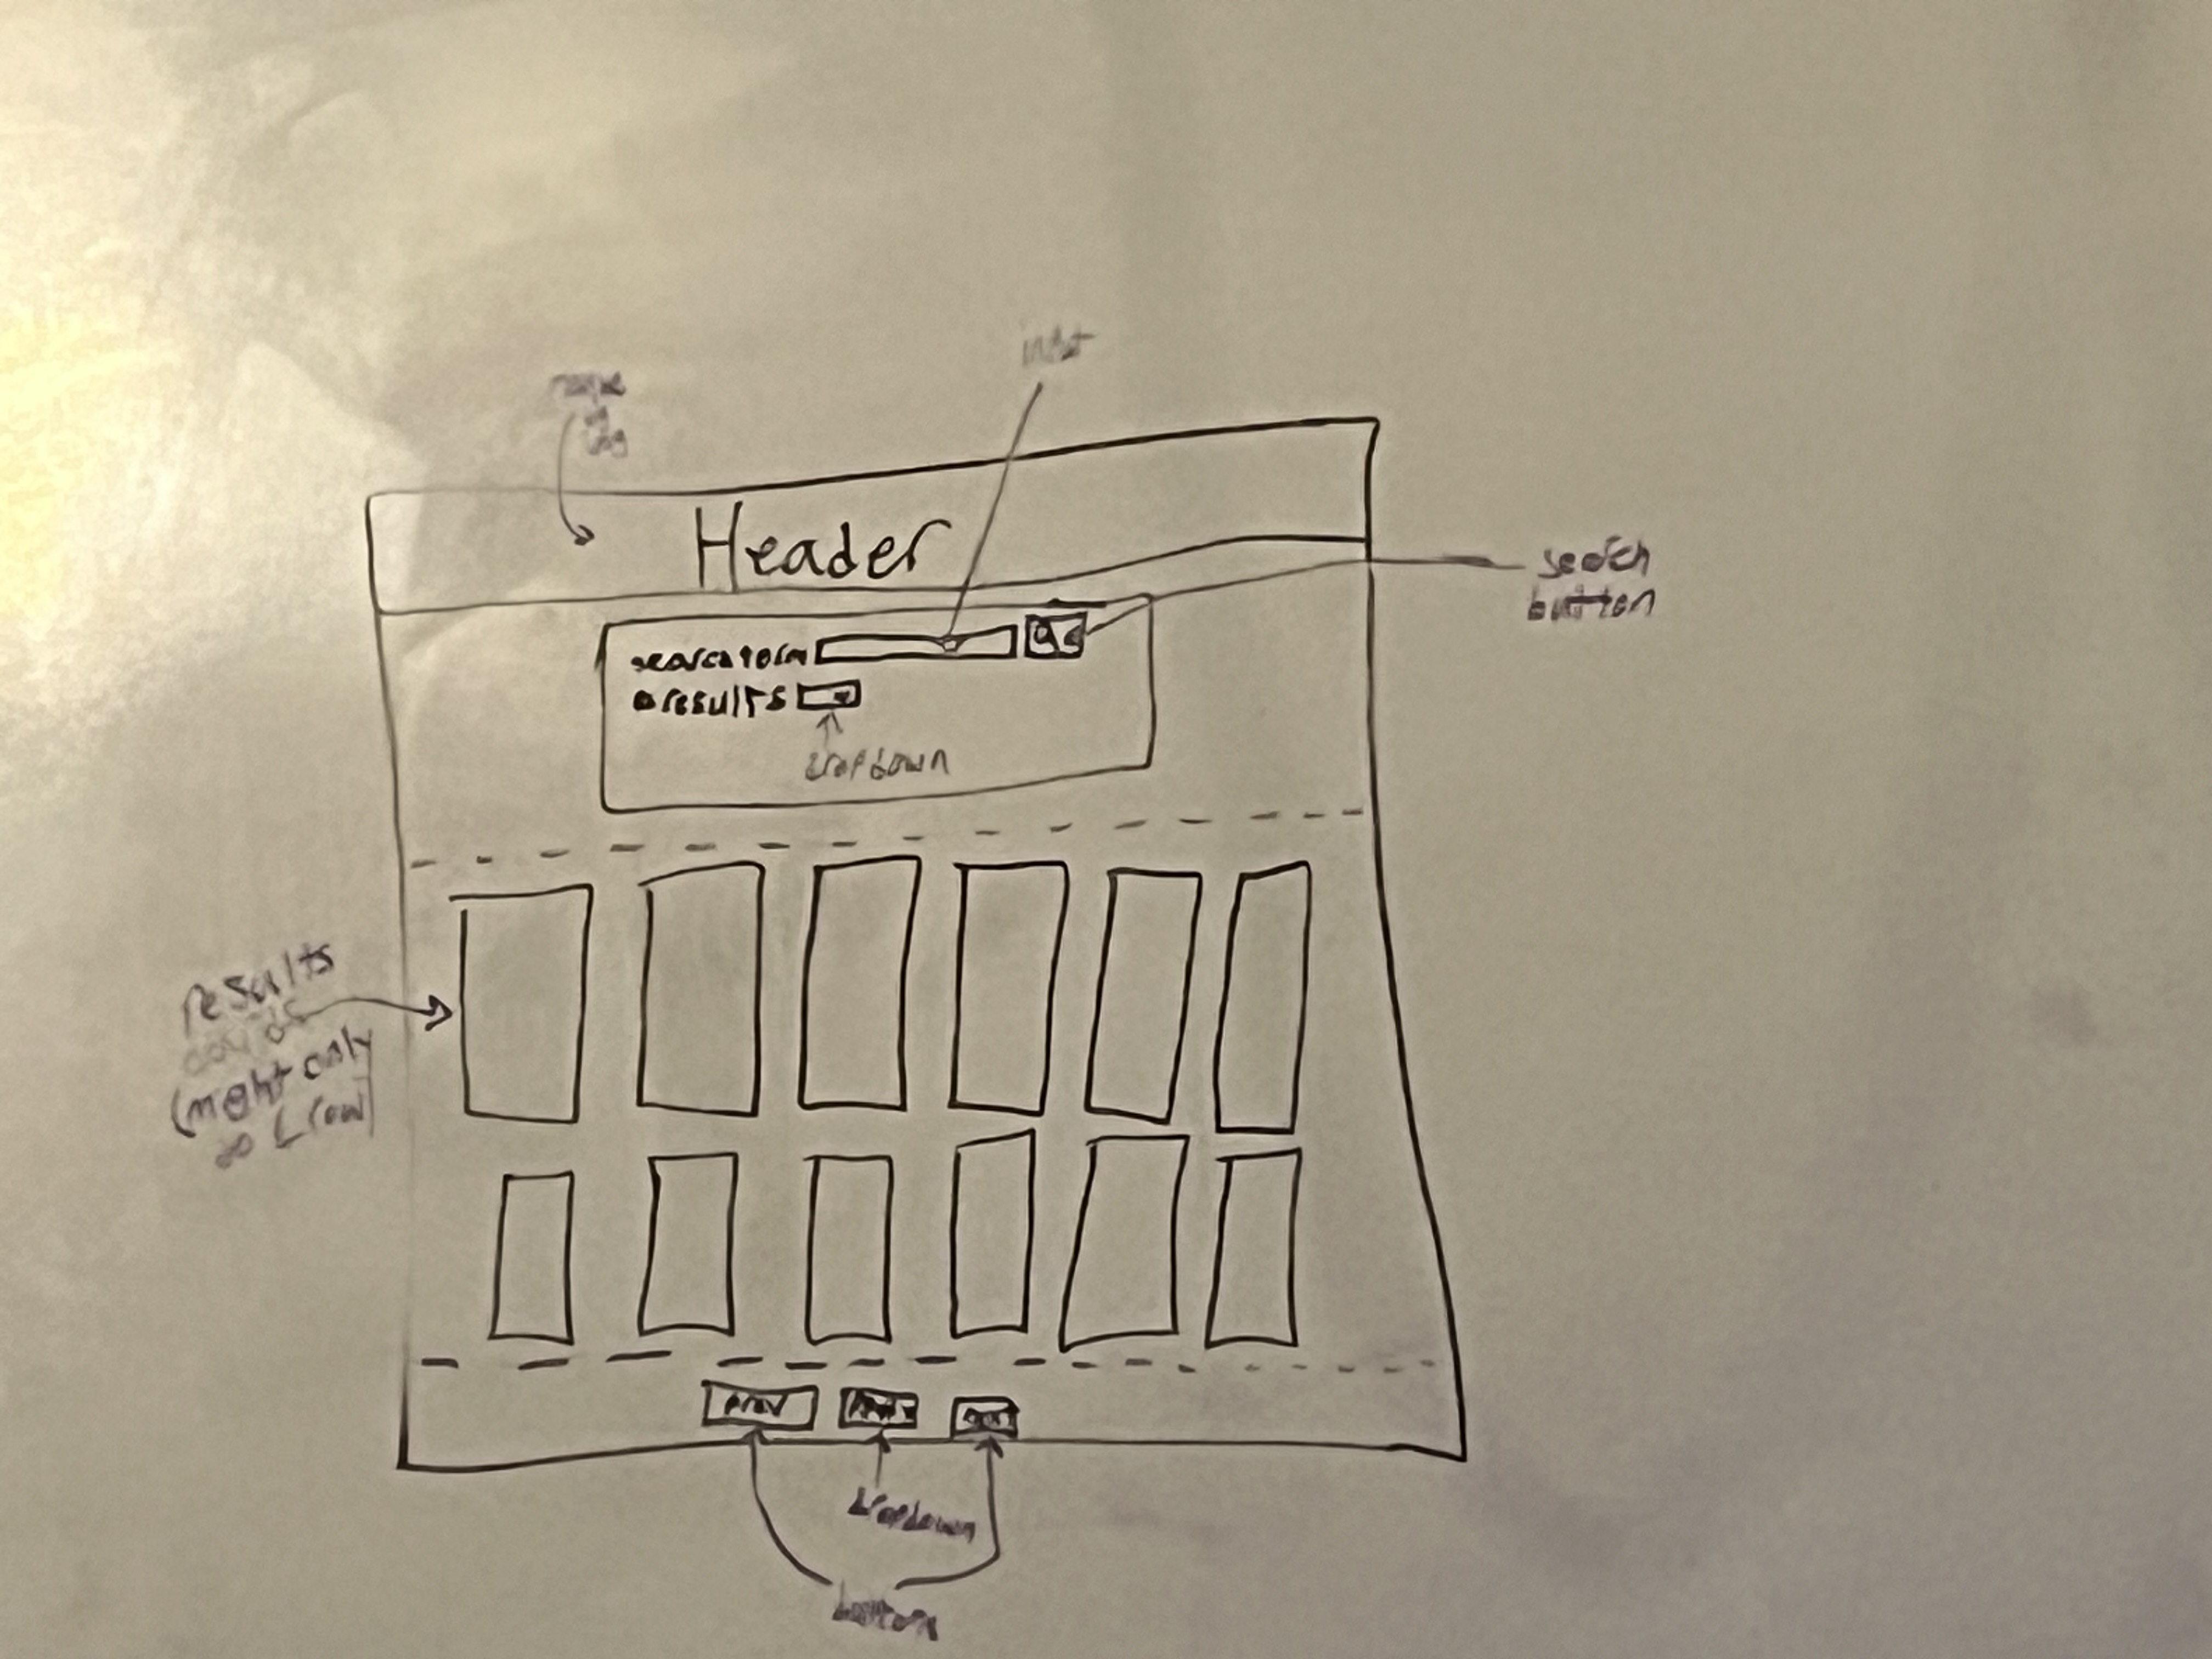 input
Header
search
button
search term
# results
dropdown
results
cards
(might only
do 1 row)
prev
next
dropdown
buttons